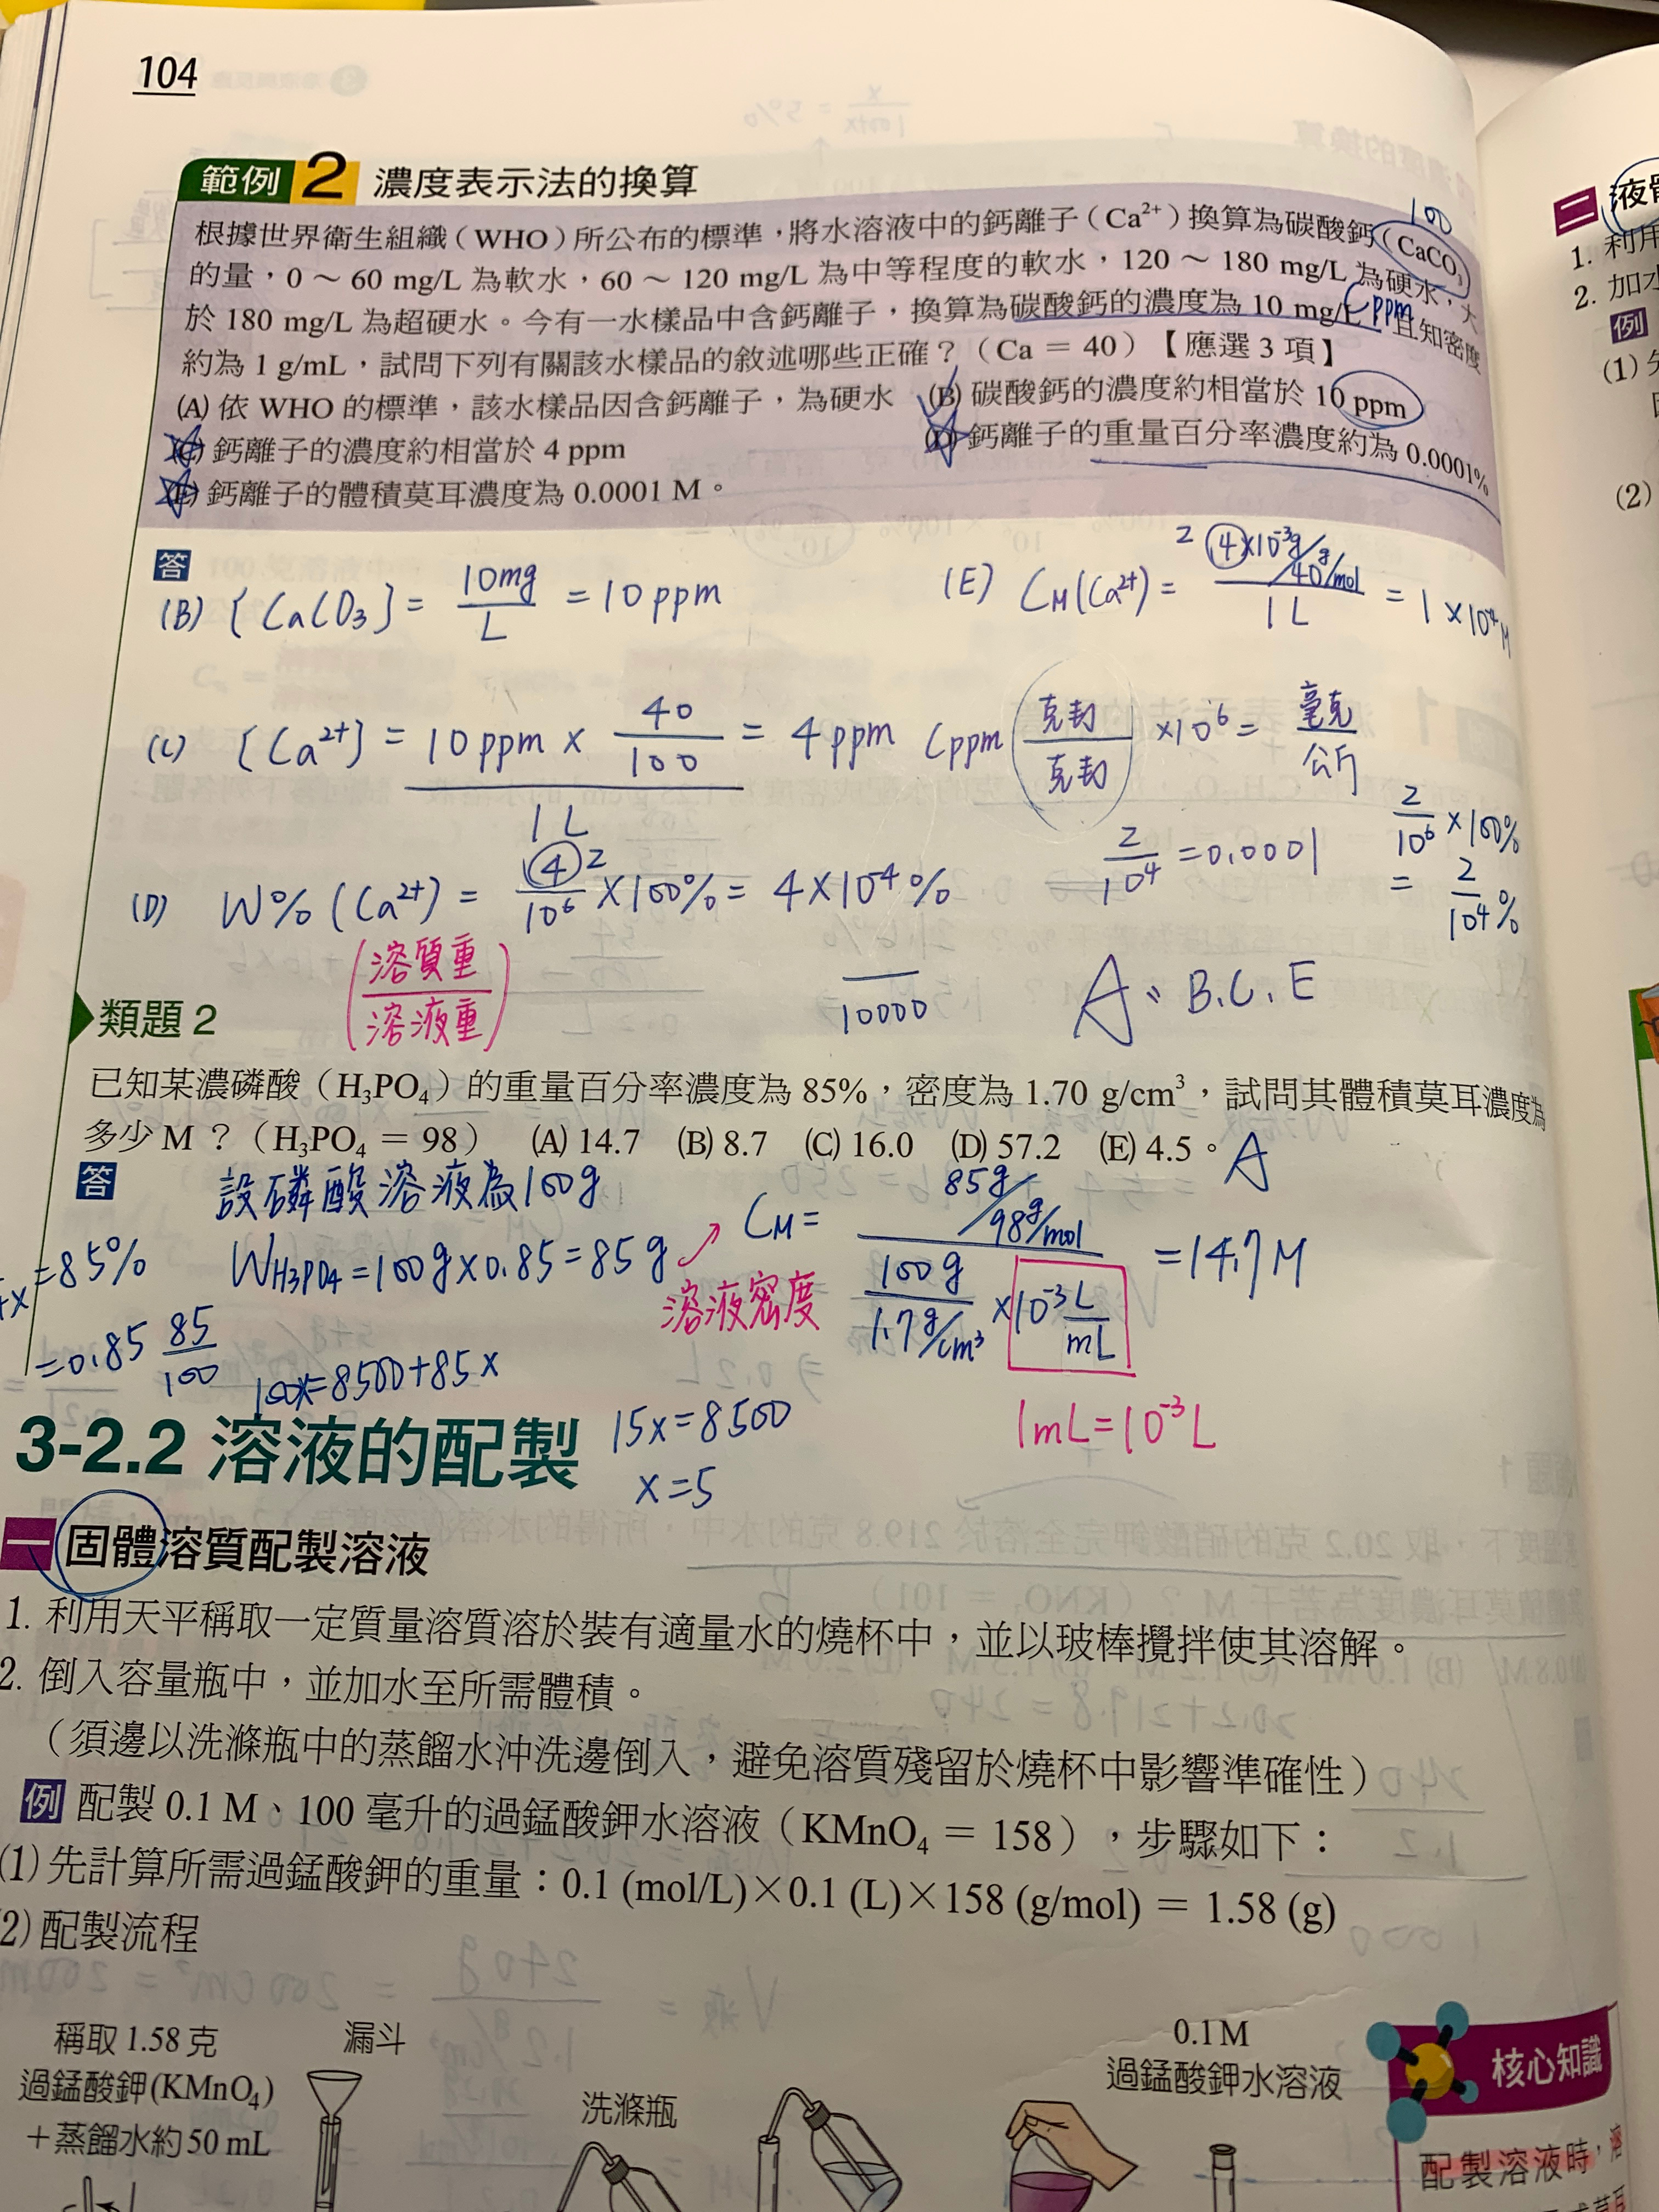 104
範例 2 濃度表示法的換算
根據世界衛生組織(WHO)所公布的標準,將水溶液中的鈣離子(Ca²⁺)換算為碳酸鈣(CaCO₃)
100
的量,0～60 mg/L 為軟水,60～120 mg/L 為中等程度的軟水,120～180 mg/L 為硬水,大
於 180 mg/L 為超硬水。今有一水樣品中含鈣離子,換算為碳酸鈣的濃度為 10 mg/L,且知密度
Cppm
約為 1 g/mL,試問下列有關該水樣品的敘述哪些正確?(Ca = 40)【應選 3 項】
(A) 依 WHO 的標準,該水樣品因含鈣離子,為硬水 (B) 碳酸鈣的濃度約相當於 10 ppm
(C) 鈣離子的濃度約相當於 4 ppm (D) 鈣離子的重量百分率濃度約為 0.0001%
(E) 鈣離子的體積莫耳濃度為 0.0001 M。
答
(B) [CaCO3] = 10mg/L = 10 ppm
(E) CM(Ca²⁺) = 4×10⁻³g/40g/mol / 1L = 1×10⁻⁴M
2
(C) [Ca²⁺] = 10 ppm × 40/100 / 1L = 4 ppm
Cppm 克封/克封 ×10⁶ = 毫克/公斤
(D) W% (Ca²⁺) = 4/10⁶ ×100% = 4×10⁻⁴%
2
2/10⁴ = 0.0001
2/10⁶ ×100%
= 2/10⁴ %
(溶質重/溶液重)
10000
A: B.C.E
類題 2
已知某濃磷酸(H₃PO₄)的重量百分率濃度為 85%,密度為 1.70 g/cm³,試問其體積莫耳濃度為
多少 M?(H₃PO₄ = 98) (A) 14.7 (B) 8.7 (C) 16.0 (D) 57.2 (E) 4.5。
A
答
設磷酸溶液為100g
WH3PO4 = 100g×0.85 = 85g
溶液密度
CM = 85g/98g/mol / 100g/1.7g/cm³ ×10⁻³ L/mL = 14.7M
1mL = 10⁻³L
+x = 85%
= 0.85 85/100
100x = 8500+85x
15x = 8500
x = 5
3-2.2 溶液的配製
一 固體溶質配製溶液
1. 利用天平稱取一定質量溶質溶於裝有適量水的燒杯中,並以玻棒攪拌使其溶解。
2. 倒入容量瓶中,並加水至所需體積。
(須邊以洗滌瓶中的蒸餾水沖洗邊倒入,避免溶質殘留於燒杯中影響準確性)
例 配製 0.1 M、100 毫升的過錳酸鉀水溶液(KMnO₄ = 158),步驟如下:
(1) 先計算所需過錳酸鉀的重量:0.1 (mol/L)×0.1 (L)×158 (g/mol) = 1.58 (g)
(2) 配製流程
稱取 1.58 克
過錳酸鉀(KMnO₄)
+蒸餾水約 50 mL
漏斗
洗滌瓶
0.1 M
過錳酸鉀水溶液
核心知識
配製溶液時,溶
二 液
1. 利用
2. 加
例
(1)
(2)